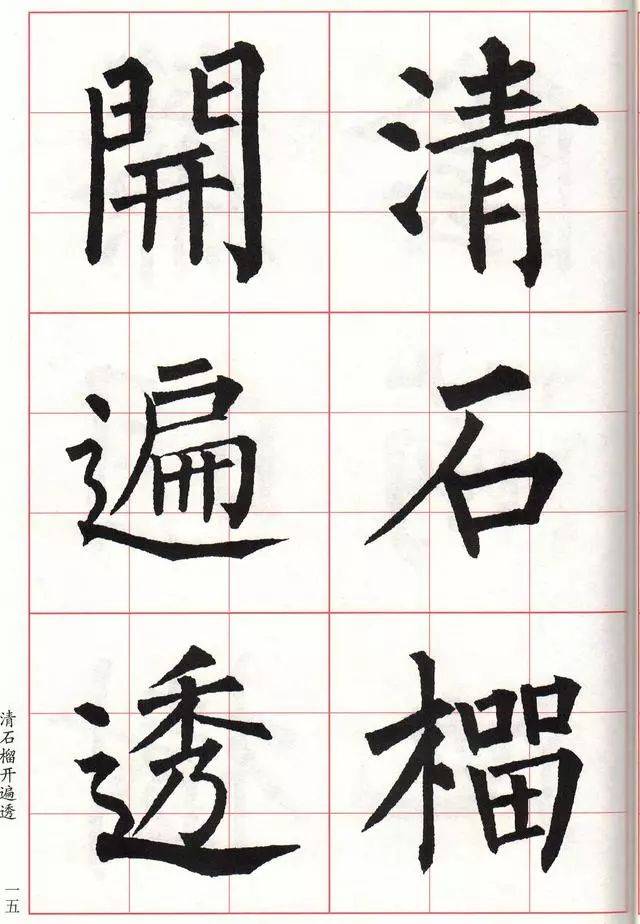 清石榴
開遍透
清石榴开遍透
一五